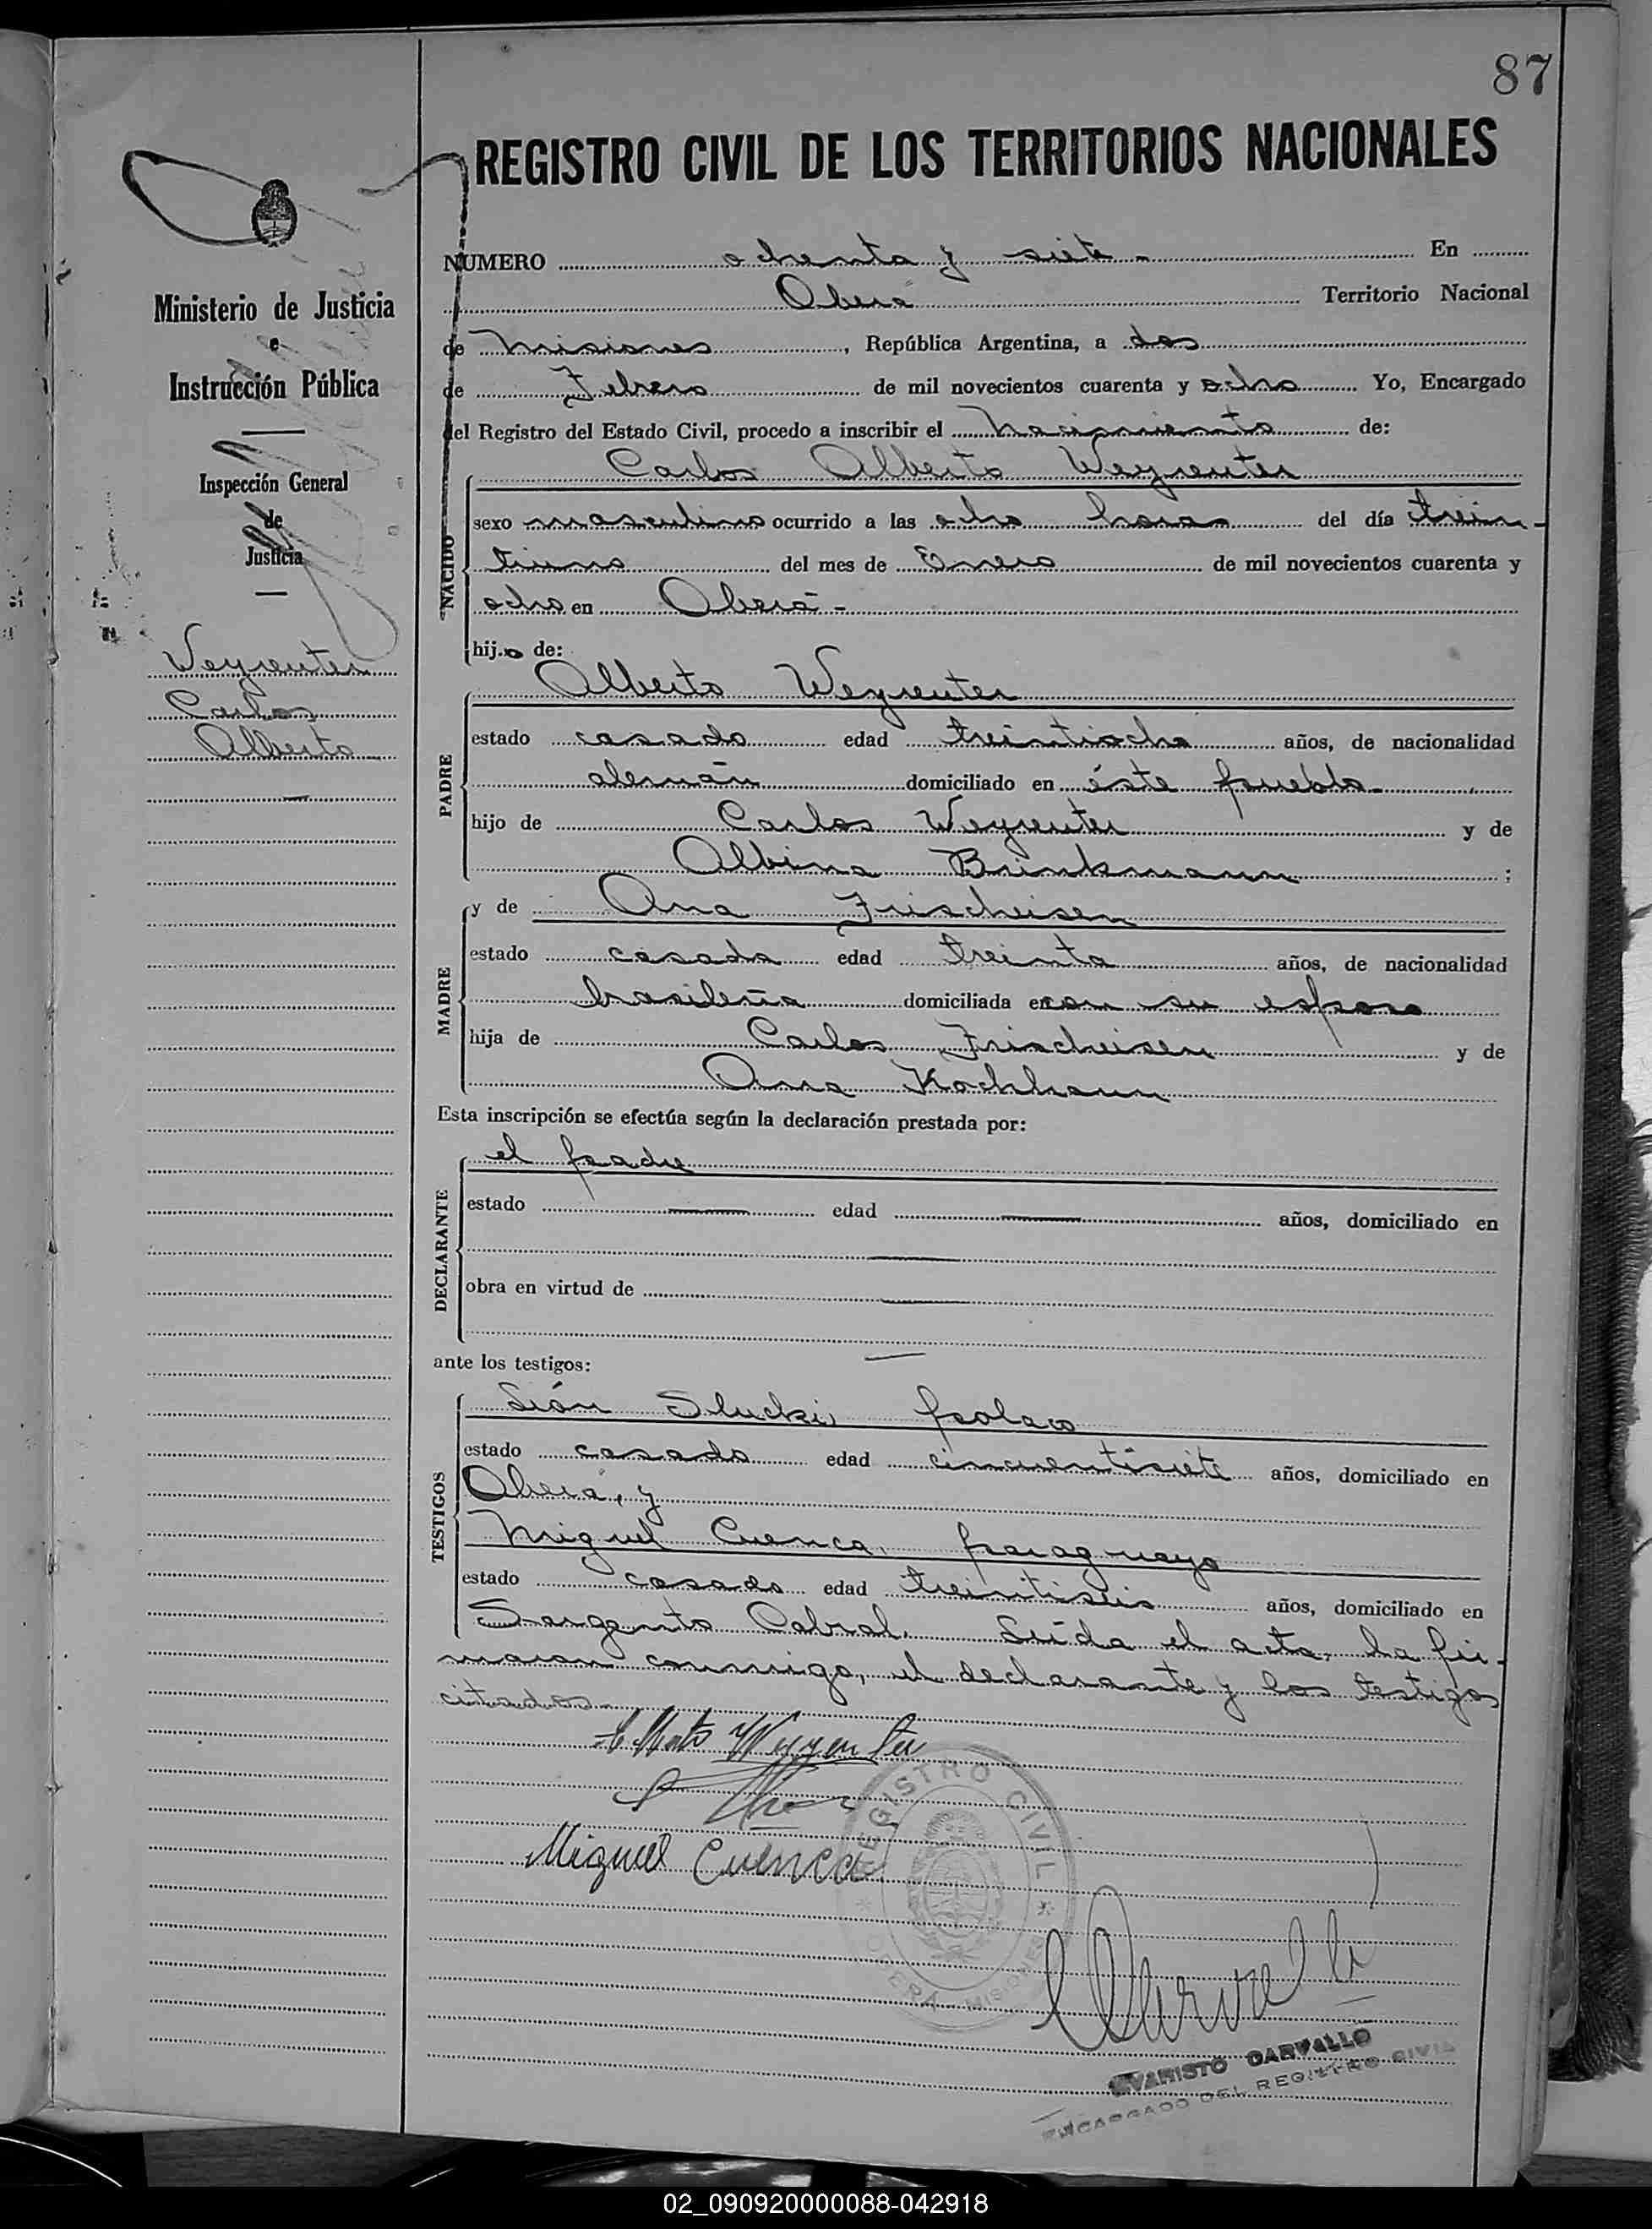 87
REGISTRO CIVIL DE LOS TERRITORIOS NACIONALES
Ministerio de Justicia
e
Instrucción Pública
Inspección General
de
Justicia
Weyreuter
Carlos
Alberto
NUMERO ochenta y siete - En
Oberá Territorio Nacional
de Misiones, República Argentina, a dos
de Febrero de mil novecientos cuarenta y ocho Yo, Encargado
del Registro del Estado Civil, procedo a inscribir el nacimiento de:
Carlos Alberto Weyreuter
NACIDO
sexo masculino ocurrido a las ocho horas del día trein-
tiuno del mes de Enero de mil novecientos cuarenta y
ocho en Oberá -
hijo de:
Alberto Weyreuter
PADRE
estado casado edad treintiocho años, de nacionalidad
alemán domiciliado en éste pueblo-
hijo de Carlos Weyreuter y de
Albina Brinkmann ;
y de Ana Frischeisen
MADRE
estado casada edad treinta años, de nacionalidad
brasileña domiciliada en con su esposo
hija de Carlos Frischeisen y de
Ana Kochhann
Esta inscripción se efectúa según la declaración prestada por:
el padre
DECLARANTE
estado — edad — años, domiciliado en
—
obra en virtud de —
ante los testigos: —
León Slucki, polaco
TESTIGOS
estado casado edad cincuentisiete años, domiciliado en
Oberá, y
Miguel Cuenca, paraguayo
estado casado edad treintiseis años, domiciliado en
Sargento Cabral. Leída el acta, la fir-
maron conmigo, el declarante y los testigos
citados-
Alberto Weyreuter
Miguel Cuenca
REGISTRO CIVIL
OBERA - MISIONES
EVARISTO CARVALLO
ENCARGADO DEL REGISTRO CIVIL
02_090920000088-042918